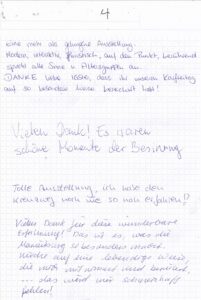 4
eine mehr als gelungene Ausstellung.
Modern, interaktiv, künstlerisch, auf den Punkt, berührend
spricht alle Sinne u. Altersgruppen an.
DANKE liebe, dass du unseren Karfreitag
auf so besondere Weise bereichert hast!
Vielen Dank! Es waren
schöne Momente der Besinnung
Tolle Ausstellung, ich habe den
Kreuzweg noch nie so nah erfahren!?
Vielen Dank für diese wunderbare
Erfahrung! Das ist es, was die
so besonders macht.
auf eine lebendige Weise,
die mich mit nimmt und berührt
... das wird mir schmerzhaft
fehlen!